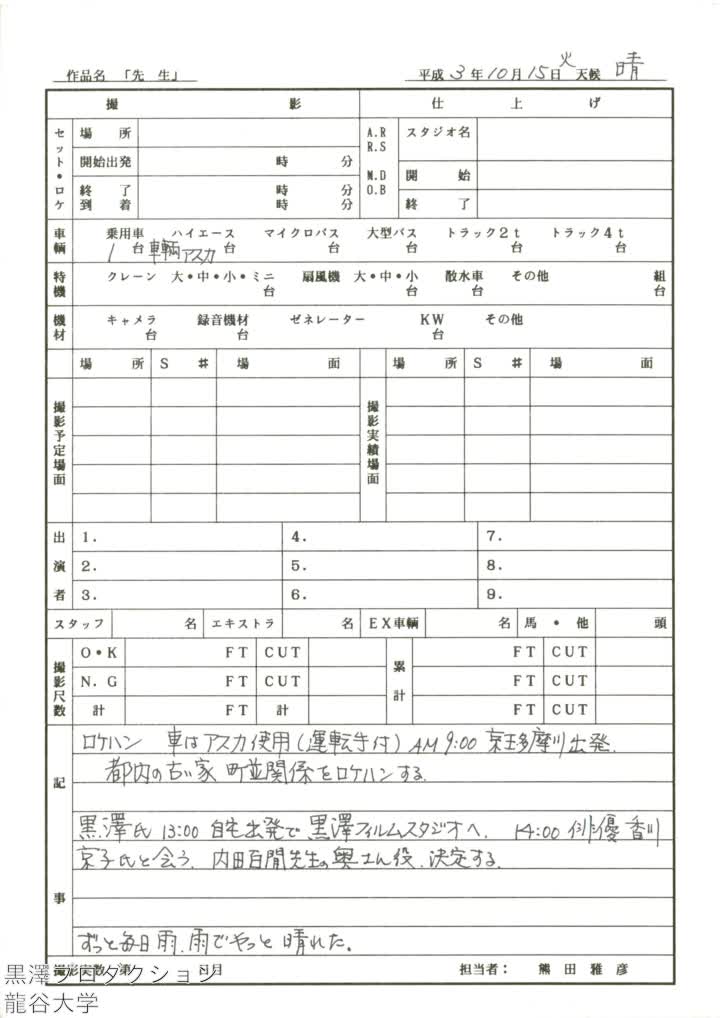 作品名 「先 生」 平成 3 年 10 月 15 日 火 天候 晴
撮 影 仕 上 げ
セット・ロケ 場 所 A.R R.S スタジオ名
開始出発 時 分 M.D O.B 開 始
終 了 時 分 終 了
到 着 時 分
車輌 乗用車 ハイエース マイクロバス 大型バス トラック2t トラック4t
1 台 車輌アスカ 台 台 台 台 台
特機 クレーン 大・中・小・ミニ 扇風機 大・中・小 散水車 その他 組
台 台 台 台
機材 キャメラ 録音機材 ゼネレーター KW その他
台 台 台
場 所 S # 場 面 場 所 S # 場 面
撮影予定場面 撮影実績場面
出演者 1. 4. 7.
2. 5. 8.
3. 6. 9.
スタッフ 名 エキストラ 名 EX車輌 名 馬・他 頭
撮影尺数 O・K FT CUT 累計 FT CUT
N.G FT CUT FT CUT
計 FT 計 FT CUT
記事
ロケハン 車はアスカ使用(運転手付) AM 9:00 京王多摩川出発.
都内の古い家 町並関係をロケハンする.
黒澤氏 13:00 自宅出発で 黒澤フィルムスタジオへ. 14:00 俳優 香川
京子氏と会う. 内田百閒先生の奥さん役. 決定する.
ずっと毎日雨、雨でやっと 晴れた。
撮影実数 第 日目 担当者: 熊 田 雅 彦
黒澤プロダクション
龍谷大学